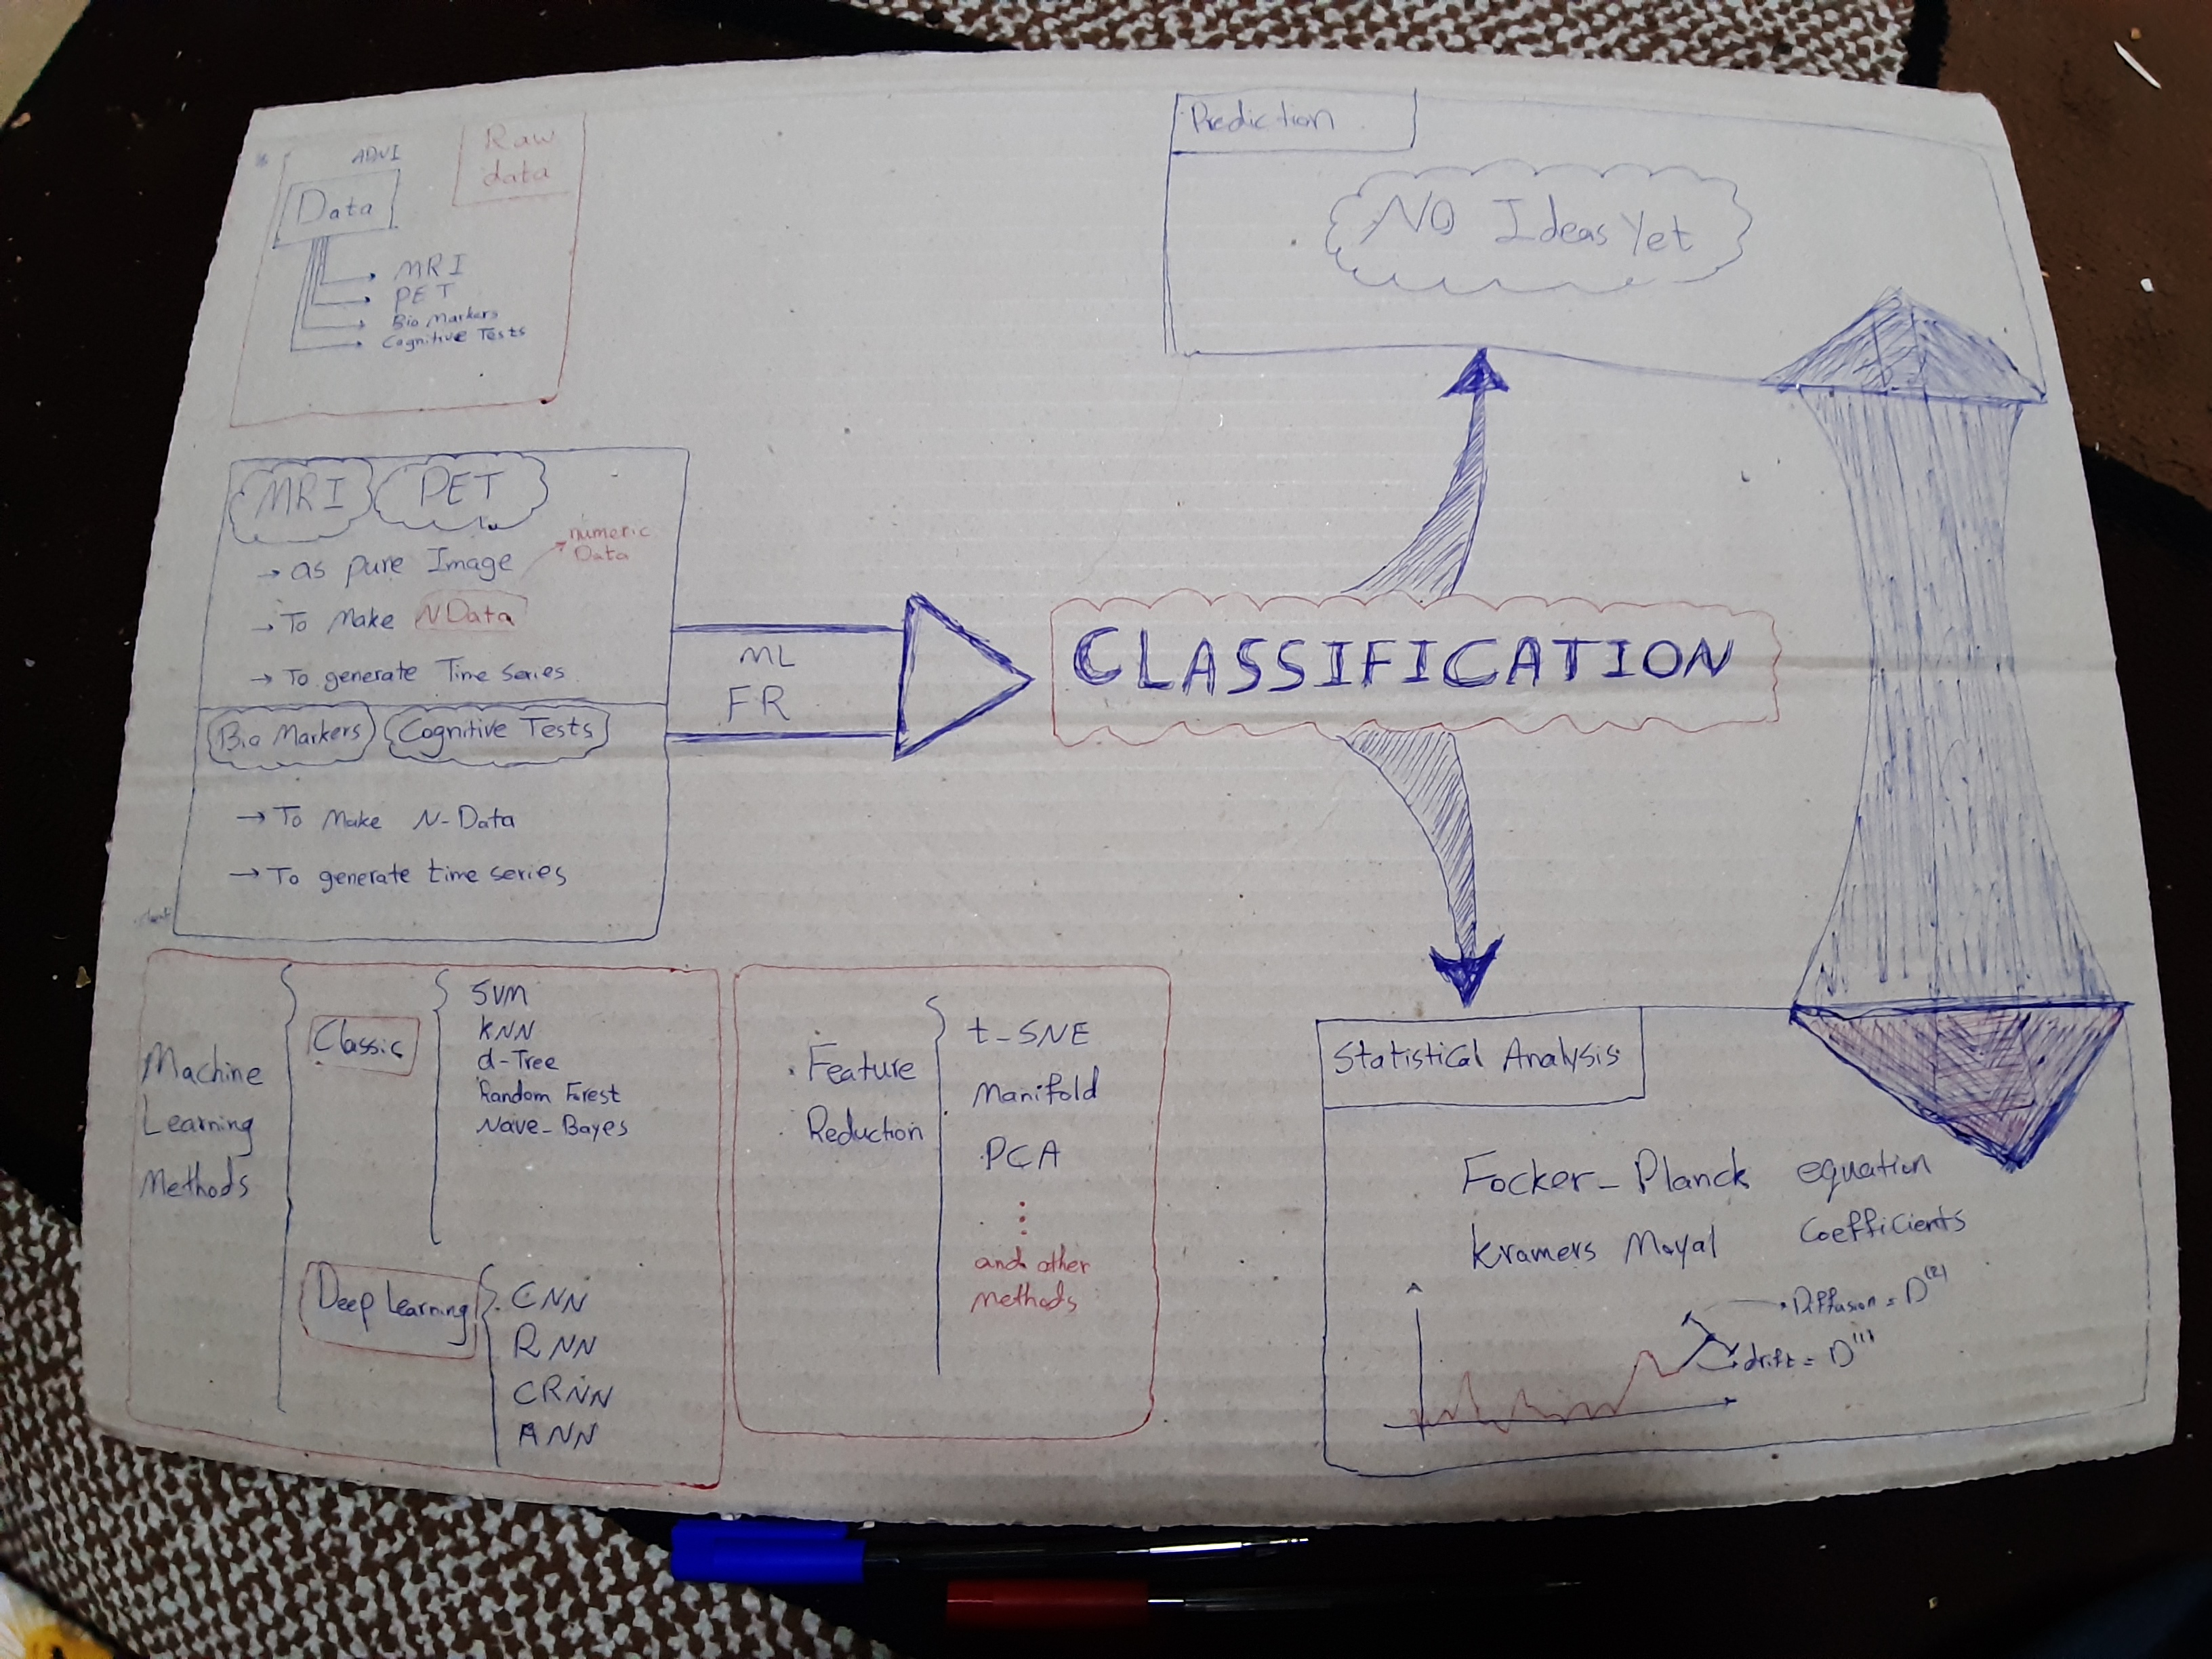 Raw
data
Data
MRI
PET
Bio Markers
Cognitive Tests
Prediction
NO Ideas Yet
MRI PET
→ as pure Image
numeric
Data
→ To Make NData
→ To generate Time series
Bio Markers Cognitive Tests
→ To Make N-Data
→ To generate time series
ML
FR
CLASSIFICATION
Machine
Learning
Methods
Classic
SVM
KNN
d-Tree
Random Forest
Nave-Bayes
Deep Learning
CNN
RNN
CRNN
ANN
Feature
Reduction
t-SNE
Manifold
PCA
and other
methods
Statistical Analysis
Focker-Planck equation
Kramers Moyal Coefficients
Diffusion = D⁽²⁾
drift = D⁽¹⁾